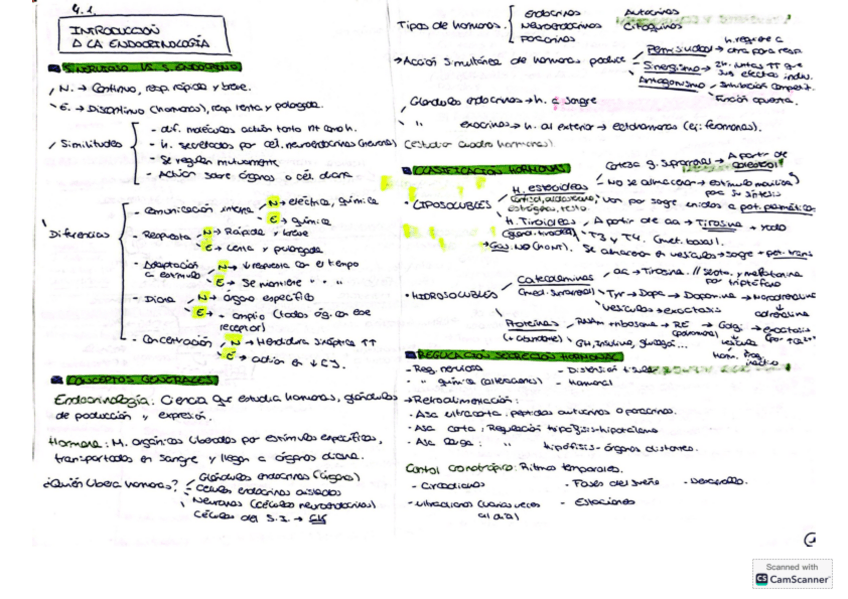 4.1.
INTRODUCCIÓN
A LA ENDOCRINOLOGÍA
S. NERVIOSO VS. S. ENDOCRINO
N. → Continuo, resp. rápida y breve.
E. → Discontinuo (hormonas), resp. lenta y prolongada.
Similitudes
- dif. moléculas actúan tanto nt como h.
- h. secretadas por cél. neuroendocrinas (neurona)
- Se regulan mutuamente
- Actúan sobre órganos o cél. diana
Diferencias
- Comunicación interna
N → eléctrica, química
E → química
- Respuesta
N → Rápida y breve
E → Lenta y prolongada
- Adaptación a estímulo
N → ↓ respuesta con el tiempo
E → Se mantiene " " "
- Diana
N → órgano específico
E → + amplio (todos órg. con ese
receptor)
- Concentración
N → Hendidura sináptica ↑↑
E → actúan en ↓ [ ].
CONCEPTOS GENERALES
Endocrinología: Ciencia que estudia hormonas, glándulas
de producción y expresión.
Hormona: M. orgánicas liberadas por estímulos específicos,
transportadas en sangre y llegan a órganos diana.
¿Quién libera hormonas?
Glándulas endocrinas (órganos)
Células endocrinas aisladas
Neuronas (células neuroendocrinas)
Células del S.I. →
Tipos de hormonas:
endocrinas
Neuroendocrinas
Paracrinas
Autocrinas
Citoquinas
→ Acción simultánea de hormonas produce
Permisividad → h. requiere a otra para resp.
Sinergismo → 2h. juntas ↑↑ que sus efectos indiv.
Antagonismo → Inhibición competit.
Función opuesta.
Glándulas endocrinas → h. a sangre
" " exocrinas → h. al exterior → ectohormonas (ej: feromonas).
(estudiar cuadro hormonas)
CLASIFICACIÓN HORMONAS
Corteza g. suprarrenal → A partir de colesterol
• LIPOSOLUBLES
H. ESTEROIDEAS
(cortisol, aldosterona,
estrógenos, testo.
- No se almacenan → estímulo moviliza
su síntesis
Van por sangre unidas a pot. plasmática.
H. Tiroideas
(gland. tiroidea)
A partir de aa → Tirosina → yodo
T3 y T4. (met. basal).
Se almacenan en vesículas → sangre → pot. trans
• HIDROSOLUBLES
Catecolaminas
(med. suprarrenal)
aa → Tirosina. // seroto. y melatonina
por triptófano
Tyr → Dopa → Dopamina → Noradrenalina
adrenalina
Vesículas → exocitosis
Proteínas
(+ abundante)
RNAm → ribosoma → RE → Golgi → exocitosis
GH, Insulina, glucagó...
vesícula
REGULACIÓN SECRECIÓN HORMONAL
- Reg. nerviosa
- " química
- Hormonal
→ Retroalimentación:
- Asa ultracorta: péptidos autocrinos o paracrinos.
- Asa corta: Regulación hipófisis-hipotálamo
- Asa larga: " hipófisis-órganos distantes.
Control cronotrópico: Ritmos temporales.
- Circadianos
- Fases del sueño
- Desarrollo.
- Ultradianos (varias veces
al día)
- Estaciones
Scanned with
CS CamScanner